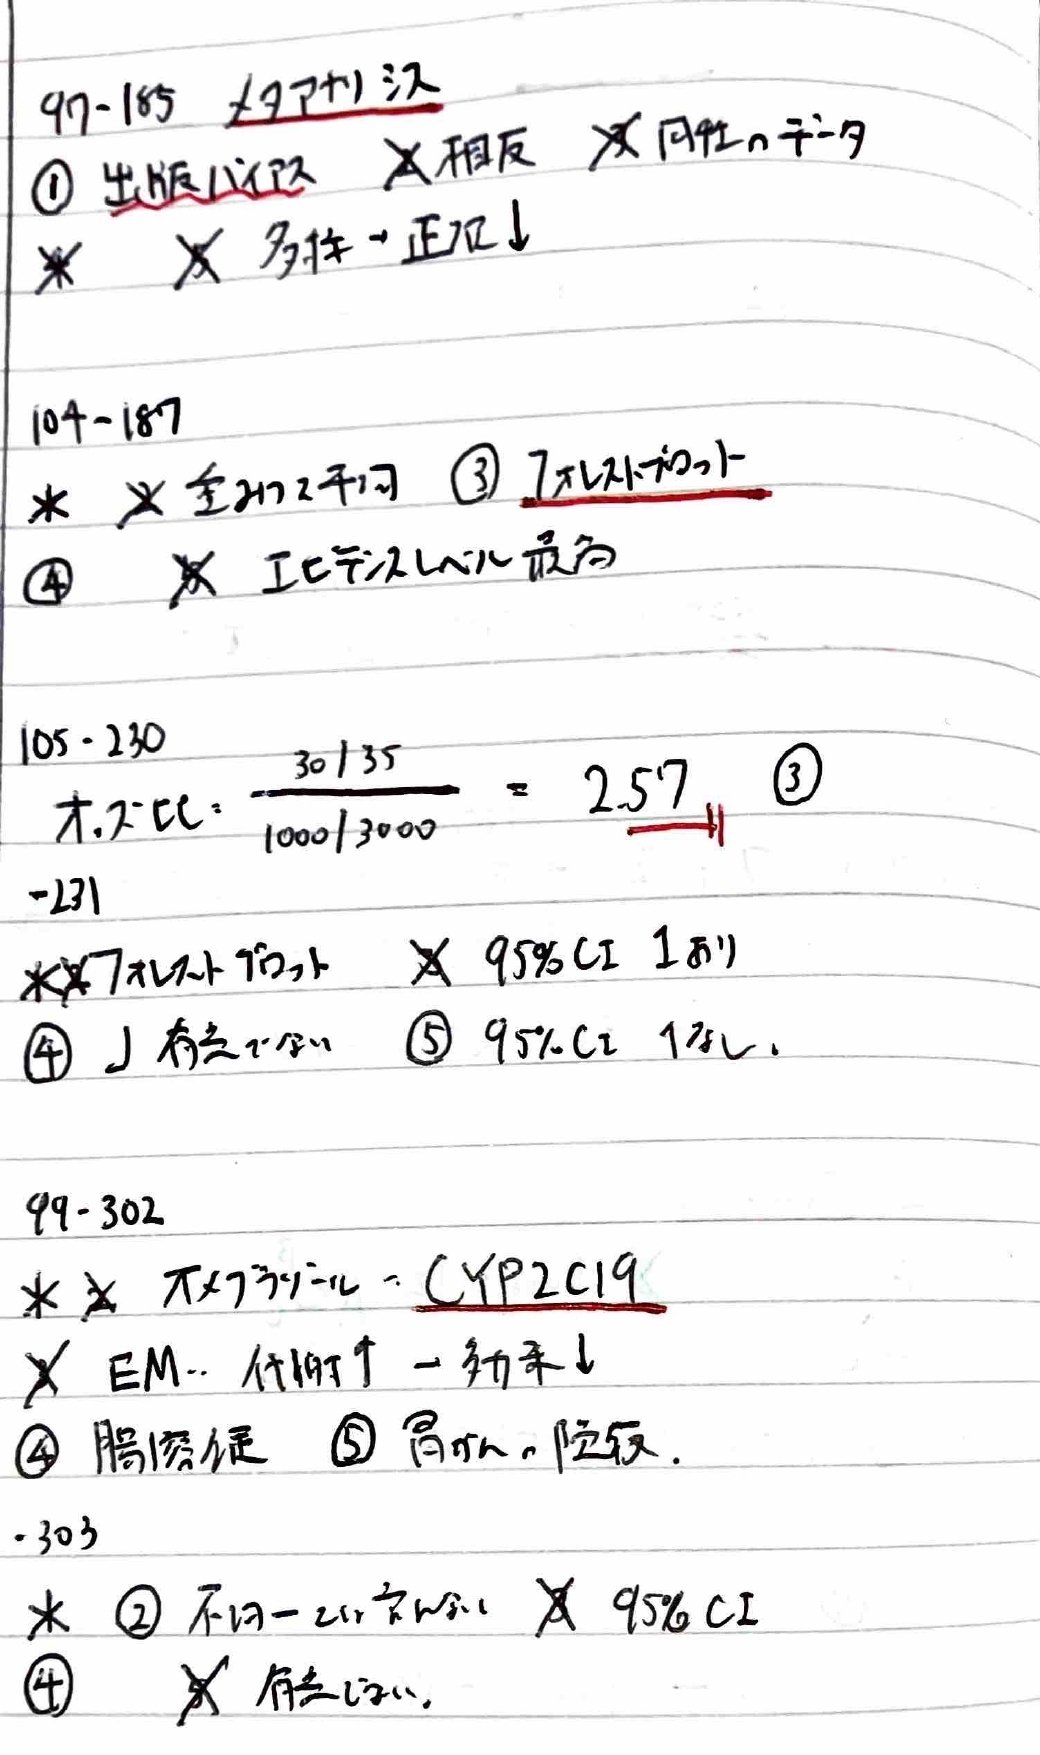 97-185 メタアナリシス
① 出版バイアス ✗2 相反 ✗3 同性のデータ
✗4 ✗5 多様→正確↓
104-187
✗1 ✗2 全みつて平均 ③ フォレストプロット
④ ✗5 エビデンスレベル最高
105-230
オッズ比: 30/35 / 1000/3000 = 2.57 ③
-231
✗1 ✗2 フォレストプロット ✗3 95%CI 1あり
④ 」有意でない ⑤ 95%CI 1なし.
99-302
✗1 ✗2 オメプラゾール - CYP2C19
✗3 EM.. 代謝↑ → 効果↓
④ 腸溶錠 ⑤ 胃がんの除外.
-303
✗1 ② 不均一とは言えない ✗3 95% CI
④ ✗5 有意じゃない.